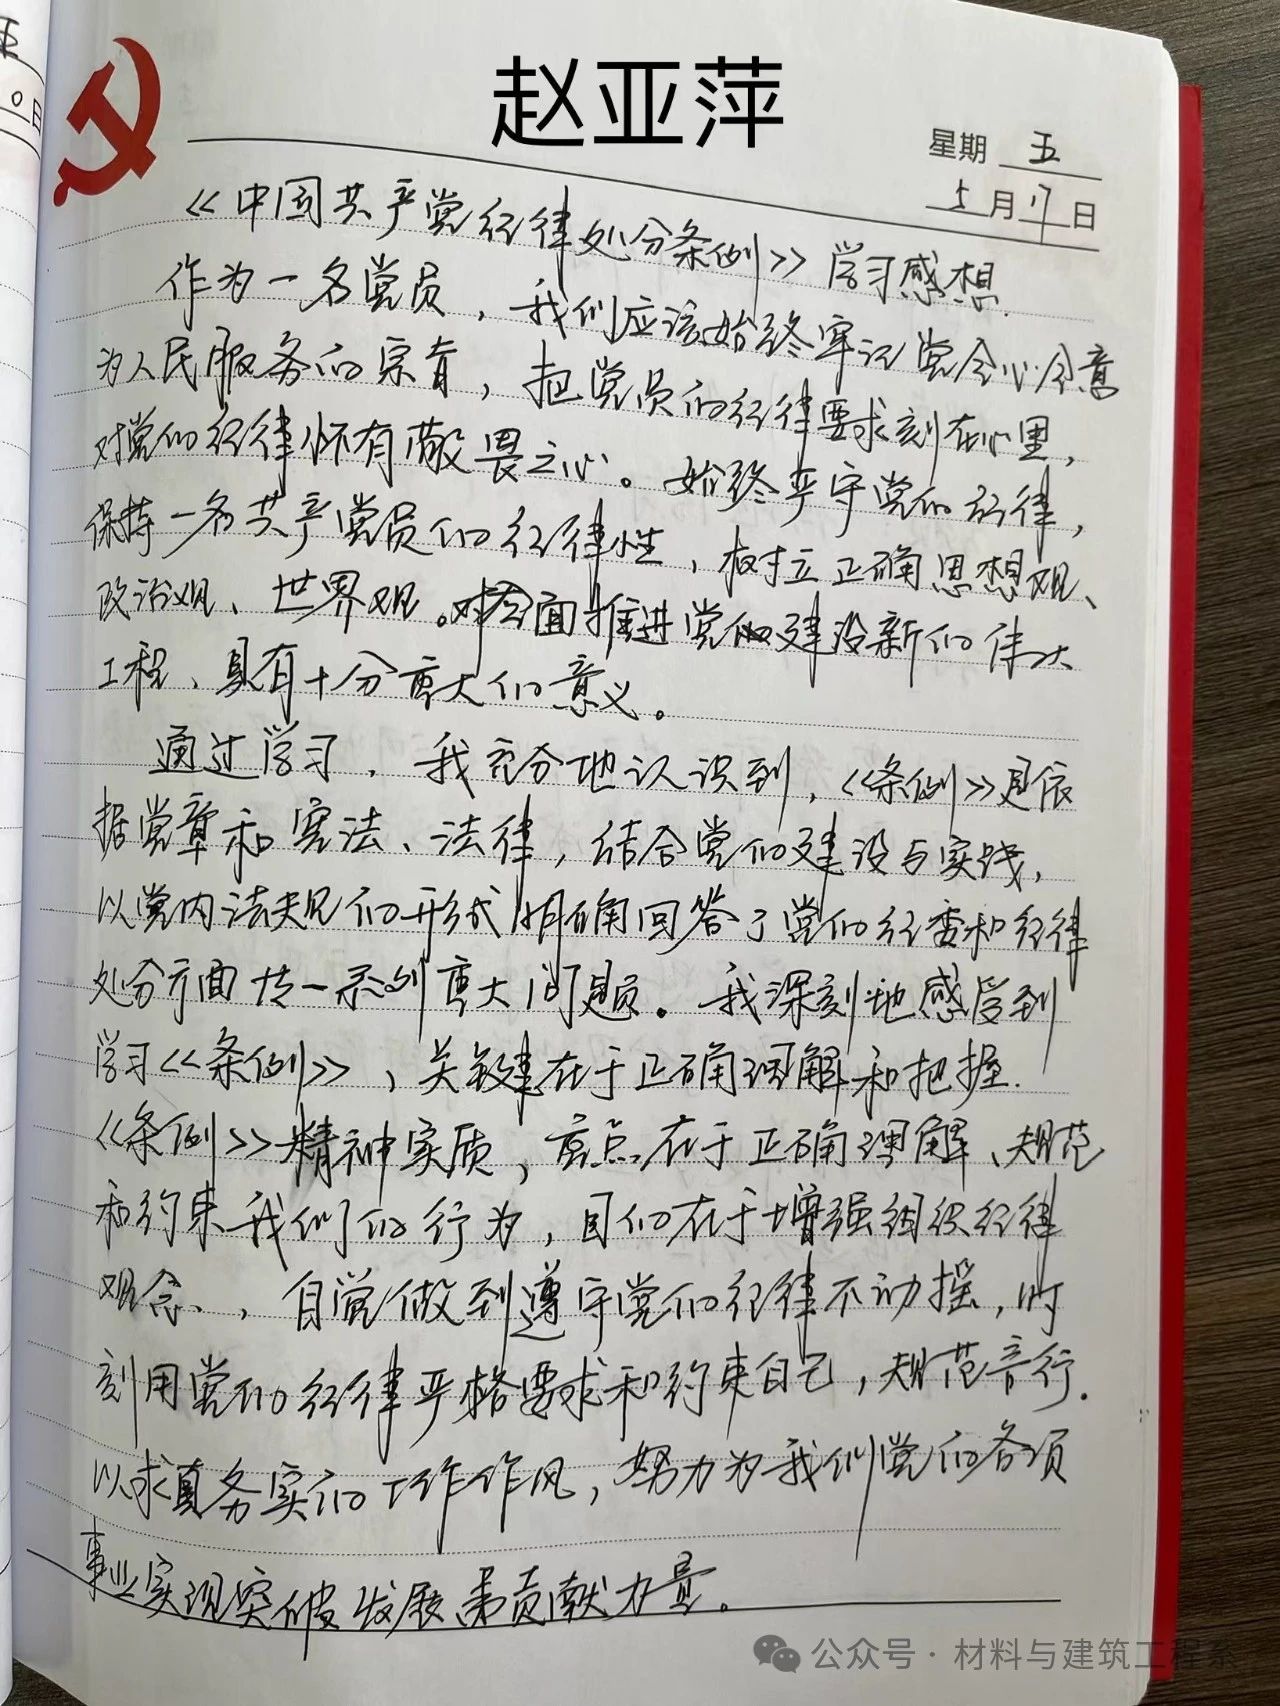 王
0日
赵亚萍
星期 五
5月17日
《中国共产党纪律处分条例》学习感想.
作为一名党员，我们应该始终牢记党全心全意
为人民服务的宗旨，把党员的纪律要求刻在心里，
对党的纪律怀有敬畏之心。始终严守党的纪律，
保持一名共产党员的纪律性，树立正确思想观、
政治观、世界观。对全面推进党的建设新的伟大
工程、具有十分重大的意义。
通过学习，我充分地认识到，《条例》是依
据党章和宪法、法律，结合党的建设与实践，
以党内法规的形式明确回答了党的纪委和纪律
处分方面 一系列重大问题。我深刻地感受到
学习《条例》，关键在于正确理解和把握.
《条例》精神实质，重点在于正确理解、规范
和约束我们的行为，目的在于增强组织纪律
观念、，自觉做到遵守党的纪律不动摇，时
刻用党的纪律严格要求和约束自己，规范言行.
以求真务实的工作作风，努力为我们党的各项
事业实现突破发展 贡献力量。
公众号·材料与建筑工程系